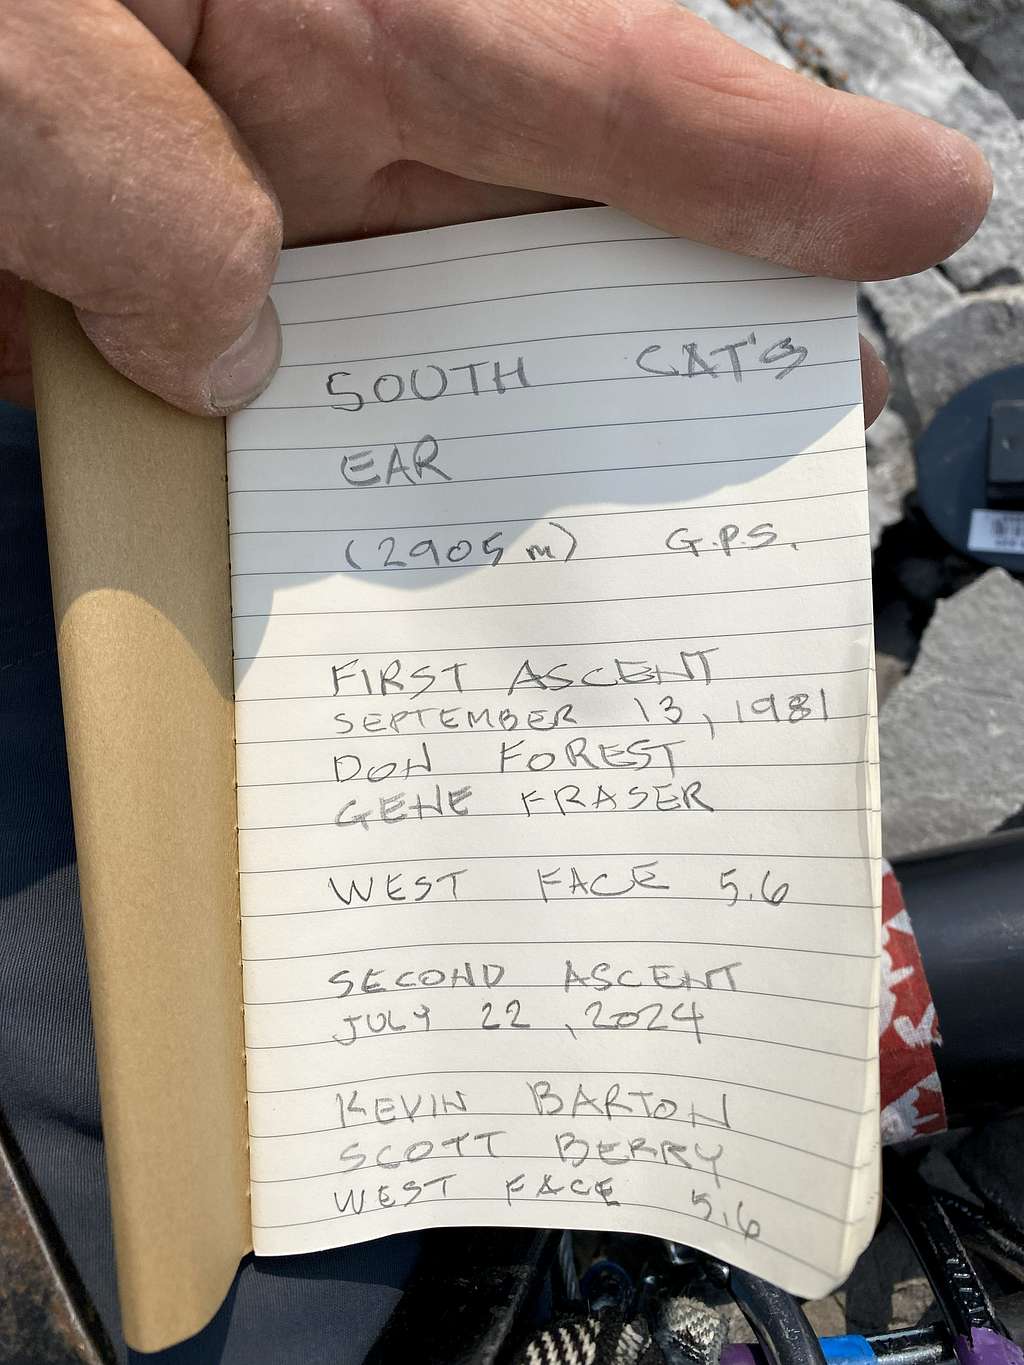 SOUTH CAT'S
EAR
(2905 m) G.P.S.
FIRST ASCENT
SEPTEMBER 13, 1981
DON FOREST
GENE FRASER
WEST FACE 5.6
SECOND ASCENT
JULY 22, 2024
KEVIN BARTON
SCOTT BERRY
WEST FACE 5.6